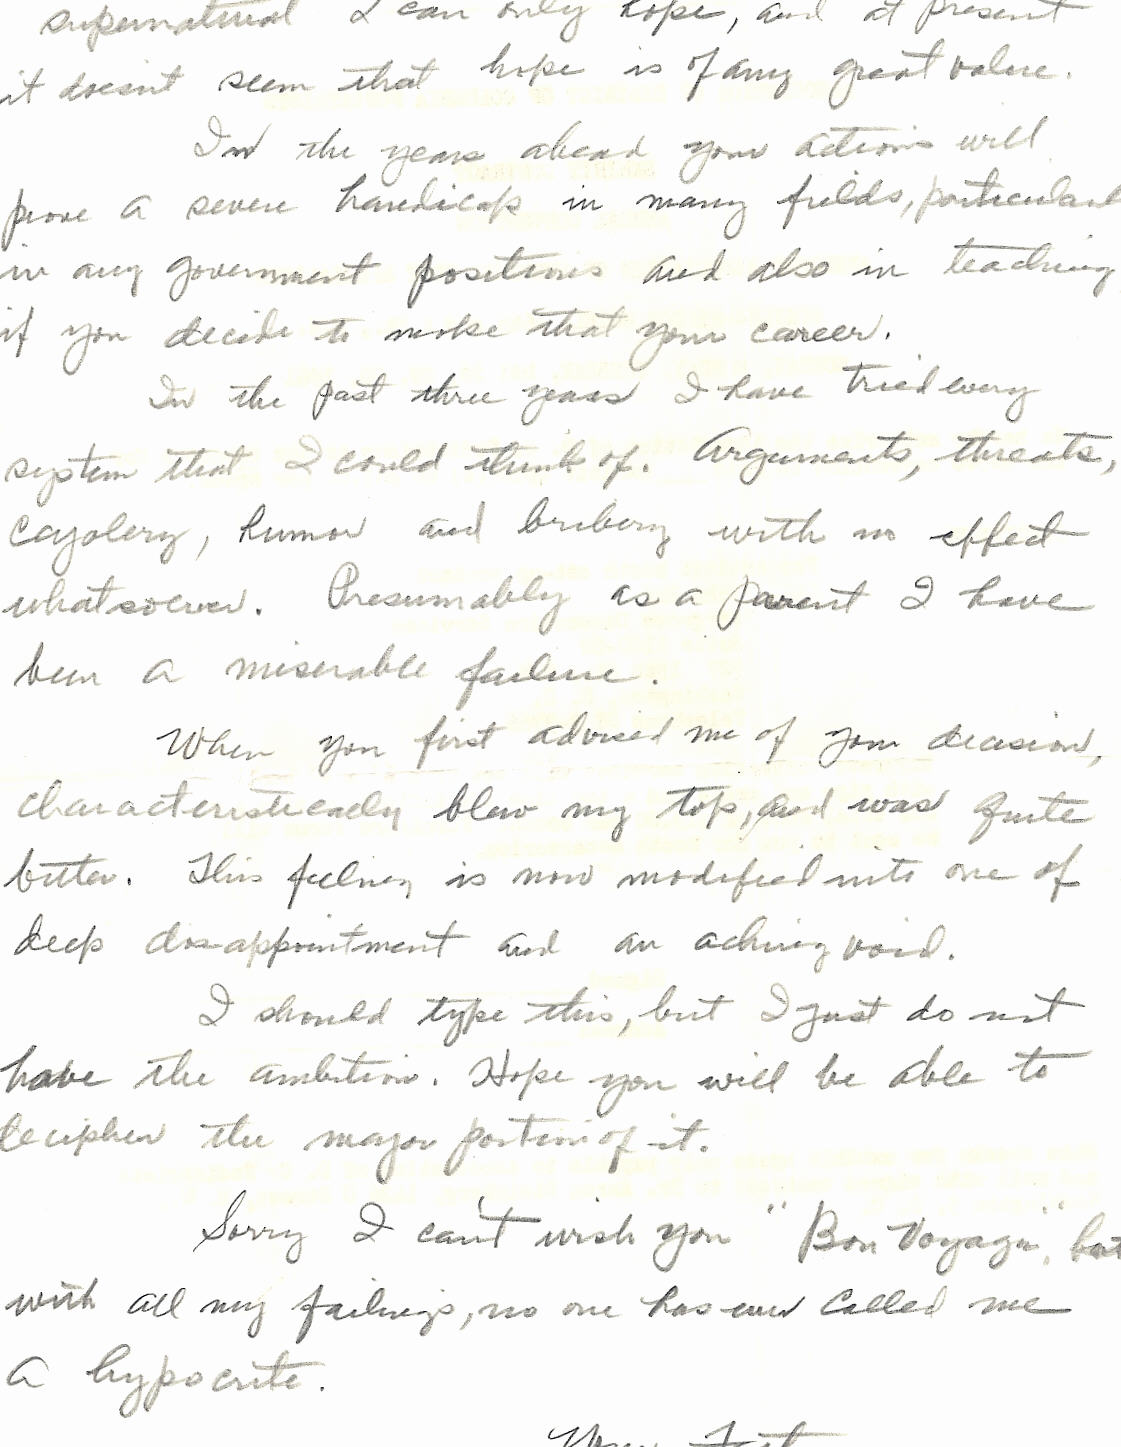 supernatural I can only hope, and at present
it doesn't seem that hope is of any great value.
In the years ahead your actions will
prove a severe handicap in many fields, particular
in any government positions and also in teaching
if you decide to make that your career.
In the past three years I have tried every
system that I could think of. Arguments, threats,
cajolery, humor and bribery with no effect
whatsoever. Presumably as a parent I have
been a miserable failure.
When you first advised me of your decision,
characteristically blew my top, and was quite
bitter. This feeling is now modified into one of
deep disappointment and an aching void.
I should type this, but I just do not
have the ambition. Hope you will be able to
decipher the major portion of it.
Sorry I can't wish you "Bon Voyage", but
with all my failings, no one has ever called me
a hypocrite.
Your